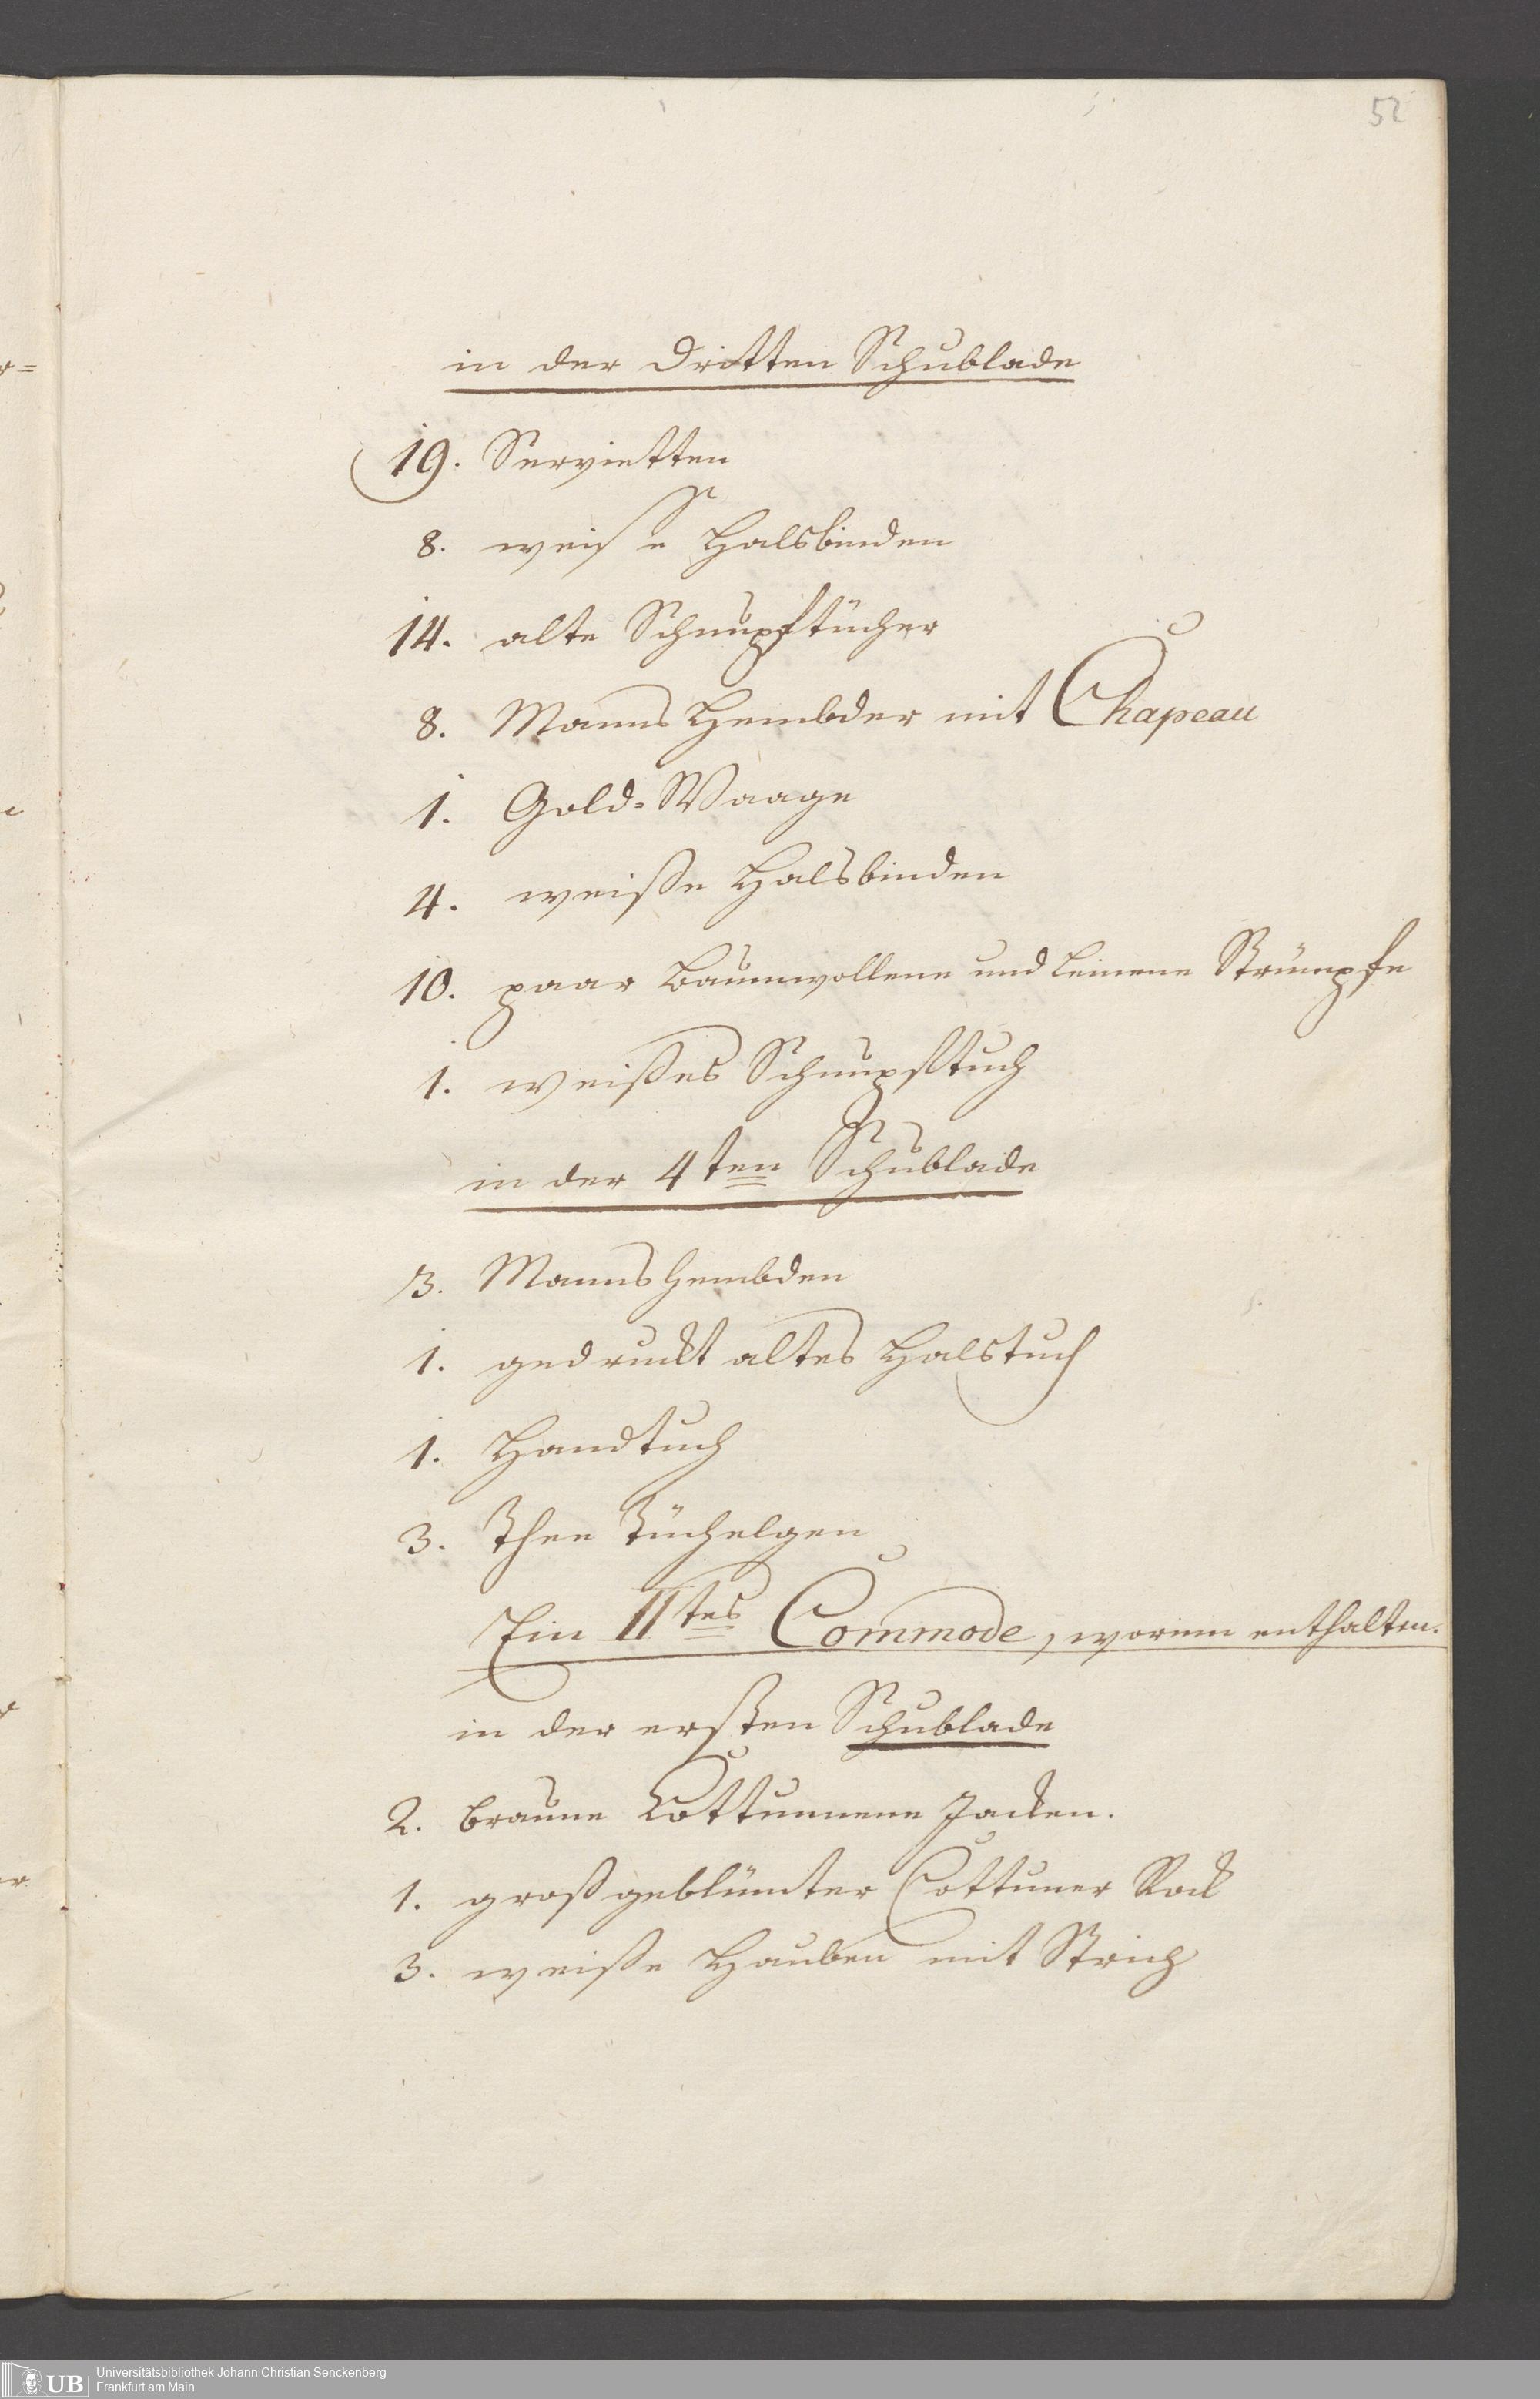 52
in der dritten Schublade
19. Servietten
8. weiße Halsbinden
14. alte Schnupftücher
8. Manns Hembder mit Chapeau
1. Gold-Waage
4. weiße Halsbinden
10. paar baumwollene und leinene Strümpfe
1. weißes Schnupftuch
in der 4ten Schublade
3. Manns hembden
1. gedruckt altes Halstuch
1. Handtuch
3. Thee Tüchelgen
Ein IItes Commode, worinn enthalten.
in der ersten Schublade
2. braune Cottunnene Jacken.
1. großgeblümter Cottuner Rock
3. weiße Hauben mit Strich
UB
Universitätsbibliothek Johann Christian Senckenberg
Frankfurt am Main